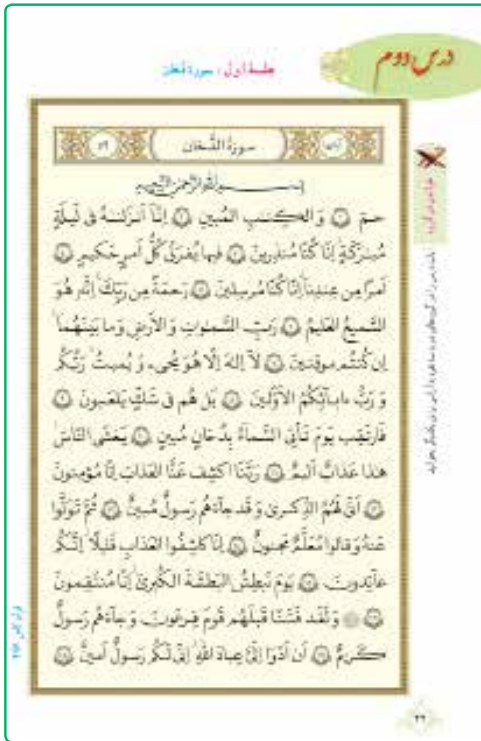 درس دوم
جلسهٔ اول : سورهٔ دُخان
آیاتها سورة الدُّخان ٥٩
بِسْمِ اللهِ الرَّحْمٰنِ الرَّحيمِ
حمٓ ١ وَ الكِتابِ المُبينِ ٢ اِنّا اَنزَلناهُ في لَيلَةٍ
مُبارَكَةٍ اِنّا كُنّا مُنذِرينَ ٣ فيها يُفرَقُ كُلُّ اَمرٍ حَكيمٍ ٤
اَمرًا مِن عِندِنا اِنّا كُنّا مُرسِلينَ ٥ رَحمَةً مِن رَبِّكَ اِنَّه هُوَ
السَّميعُ العَليمُ ٦ رَبِّ السَّماواتِ وَ الاَرضِ وَ ما بَينَهُما
اِن كُنتُم موقِنينَ ٧ لا اِلهَ اِلّا هُوَ يُحيي وَ يُميتُ رَبُّكُم
وَ رَبُّ ءابائِكُمُ الاَوَّلينَ ٨ بَل هُم في شَكٍّ يَلعَبونَ ٩
فَارتَقِب يَومَ تَأتِي السَّماءُ بِدُخانٍ مُبينٍ ١٠ يَغشَى النّاسَ
هذا عَذابٌ اَليمٌ ١١ رَبَّنَا اكشِف عَنَّا العَذابَ اِنّا مُؤمِنونَ
١٢ اَنّى لَهُمُ الذِّكرى وَ قَد جاءَهُم رَسولٌ مُبينٌ ١٣ ثُمَّ تَوَلَّوا
عَنهُ وَ قالوا مُعَلَّمٌ مَجنونٌ ١٤ اِنّا كاشِفُوا العَذابِ قَليلًا اِنَّكُم
عائِدونَ ١٥ يَومَ نَبطِشُ البَطشَةَ الكُبرى اِنّا مُنتَقِمونَ
١٦ وَ لَقَد فَتَنّا قَبلَهُم قَومَ فِرعَونَ وَ جاءَهُم رَسولٌ
كَريمٌ ١٧ اَن اَدّوا اِلَيَّ عِبادَ اللهِ اِنّي لَكُم رَسولٌ اَمينٌ ١٨
٢٢